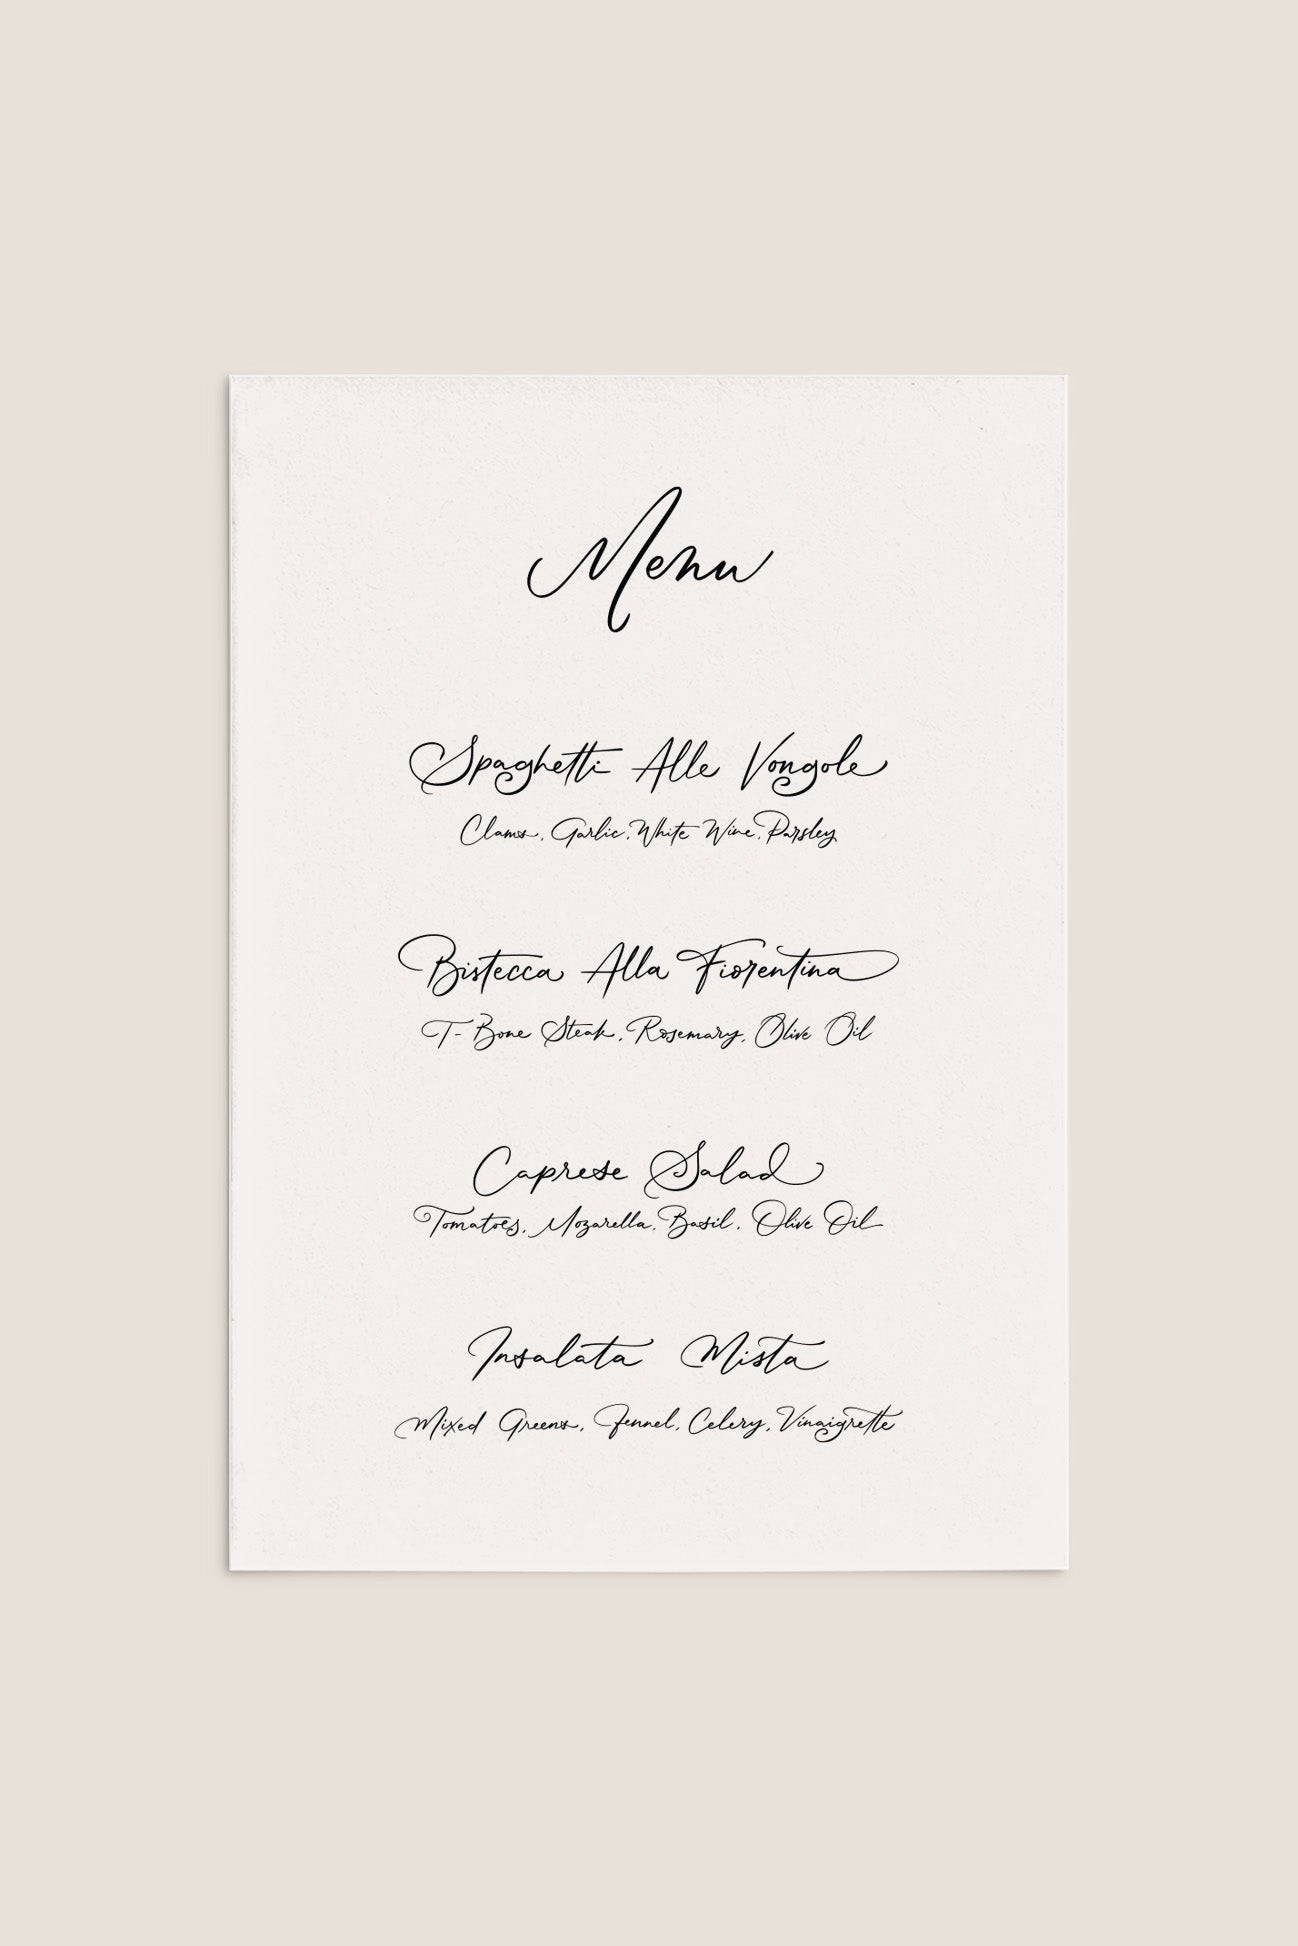 Menu
Spaghetti Alle Vongole
Clams, Garlic, White Wine, Parsley
Bistecca Alla Fiorentina
T-Bone Steak, Rosemary, Olive Oil
Caprese Salad
Tomatoes, Mozarella, Basil, Olive Oil
Insalata Mista
Mixed Greens, Fennel, Celery, Vinaigrette